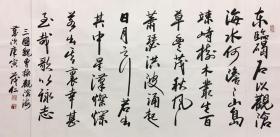 東臨碣石以觀滄
海水何澹澹山島
竦峙樹木叢生百
草豐茂秋風
蕭瑟洪波湧起
日月之行若出
其中星漢燦爛
若出其裏幸甚
至哉歌以咏志
三國魏曹操觀滄海
庚寅